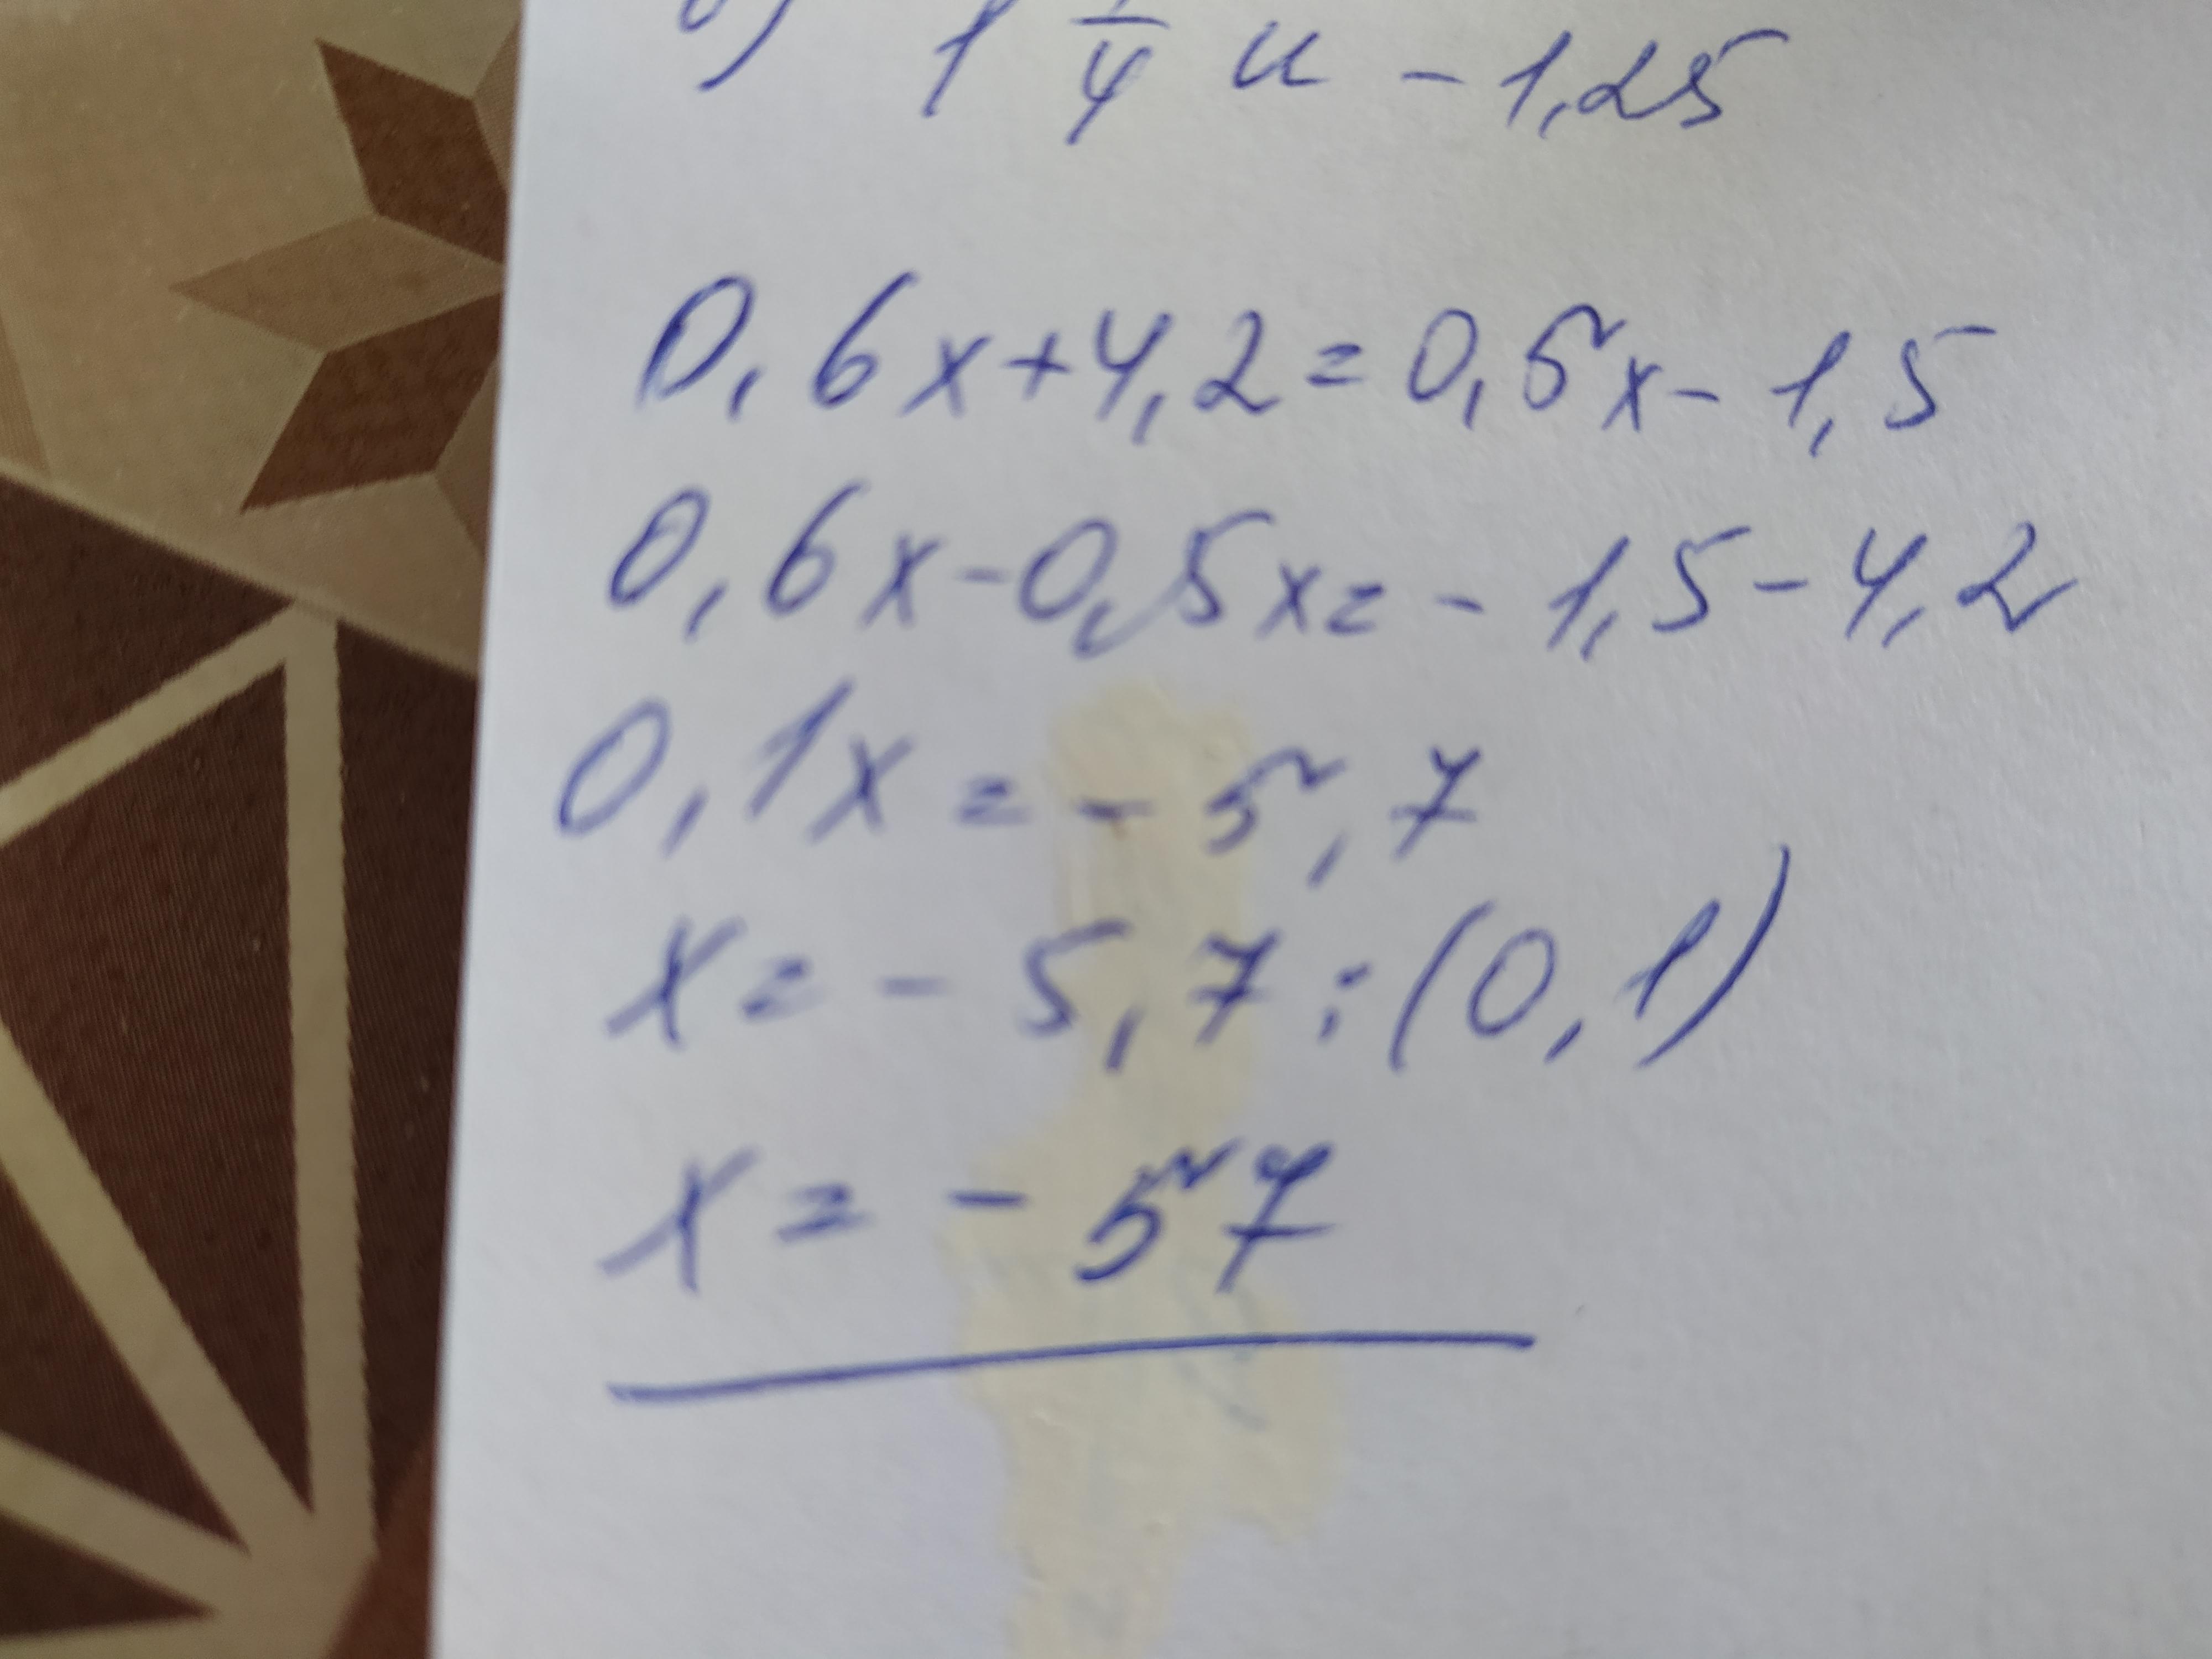 б) 1 1/4 и -1,25
0,6x+4,2=0,5x-1,5
0,6x-0,5x=-1,5-4,2
0,1x=-5,7
x=-5,7:(0,1)
x=-57